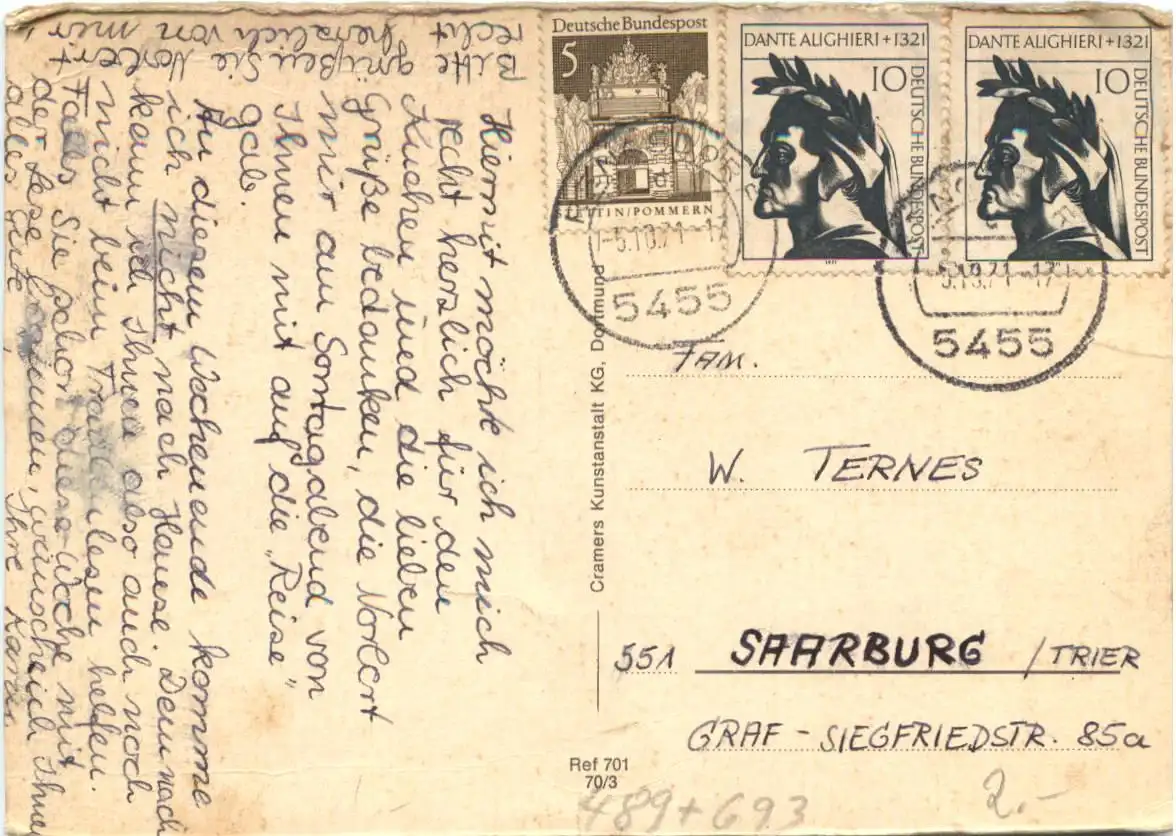 Hiermit möchte ich mich
recht herzlich für den
Kuchen und die lieben
Grüße bedanken, die Norbert
mir am Sonntagabend von
Ihnen mit auf die „Reise“
gab.
An diesem Wochenende komme
ich nicht nach Hause. Demnach
kann ich Ihnen also auch noch
nicht beim Trauben lesen helfen.
Falls Sie schon diese Woche mit
der Lese beginnen, wünsche ich Ihnen
alles Gute,
Ihre
Bitte grüßen Sie Norbert
recht herzlich von mir
Deutsche Bundespost
5
STETTIN/POMMERN
DANTE ALIGHIERI + 1321
10
DEUTSCHE BUNDESPOST
DANTE ALIGHIERI + 1321
10
DEUTSCHE BUNDESPOST
-5.10.71
5455
5.10.71-17
5455
Cramers Kunstanstalt KG, Dortmund
FAM.
W. TERNES
551 SAARBURG / TRIER
GRAF - SIEGFRIEDSTR. 85a
Ref 701
70/3
489+693
2.-